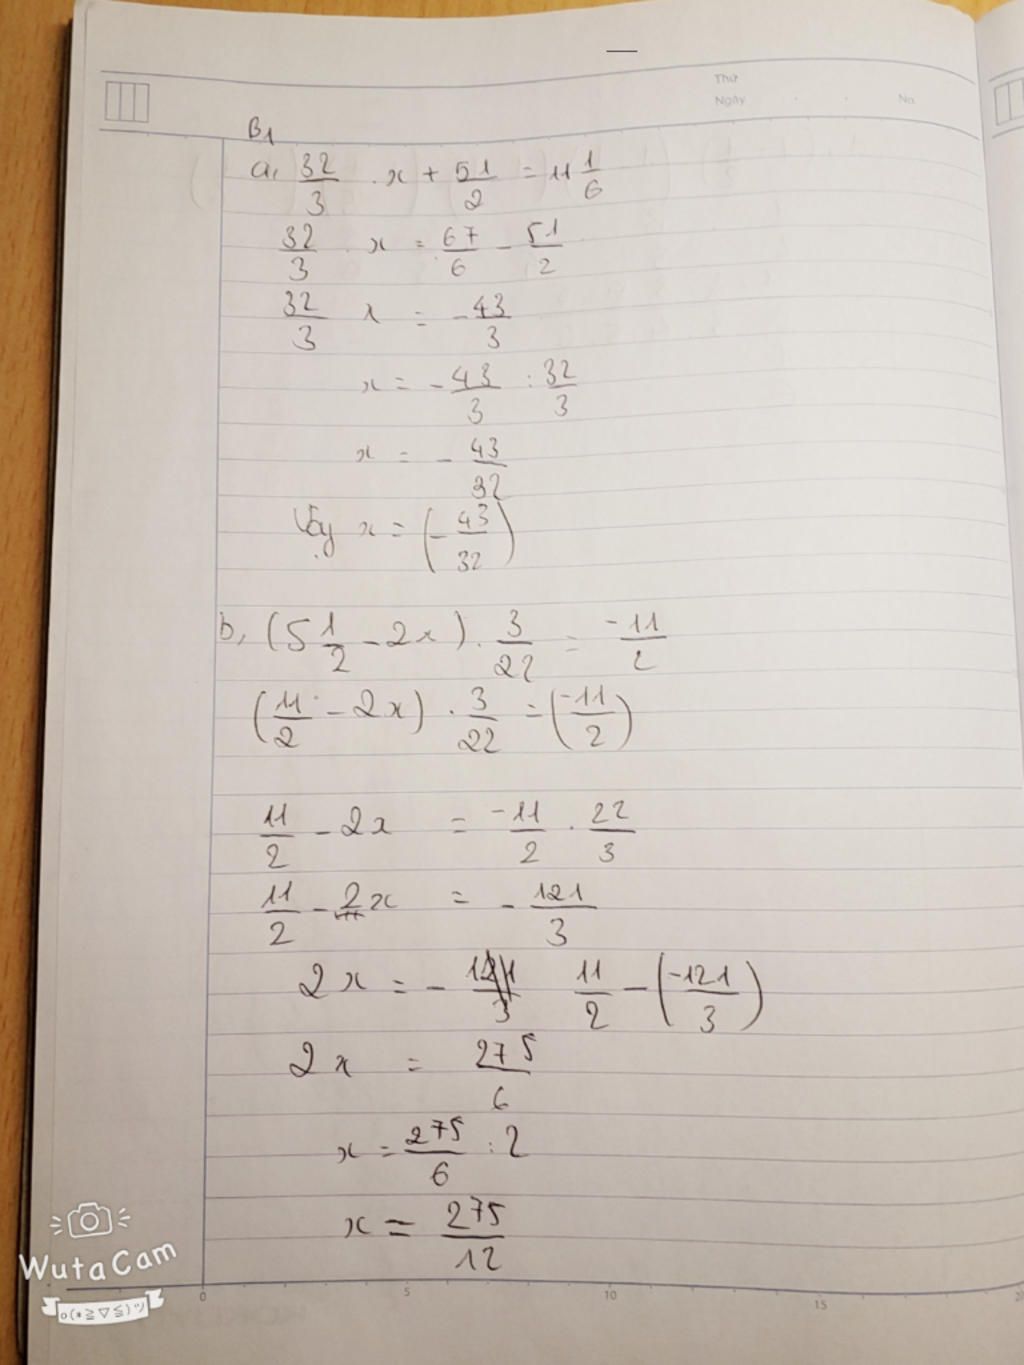 Thứ
Ngày . . No
B1
a, 32/3 . x + 51/2 = 11 1/6
32/3 . x = 67/6 - 51/2
32/3 x = -43/3
x = -43/3 : 32/3
x = -43/32
Vậy x = (-43/32)
b, (5 1/2 - 2x) . 3/22 = -11/2
(11/2 - 2x) . 3/22 = (-11/2)
11/2 - 2x = -11/2 . 22/3
11/2 - 2x = -121/3
2x = 11/2 - (-121/3)
2x = 275/6
x = 275/6 : 2
x = 275/12
WutaCam
0 5 10 15 20